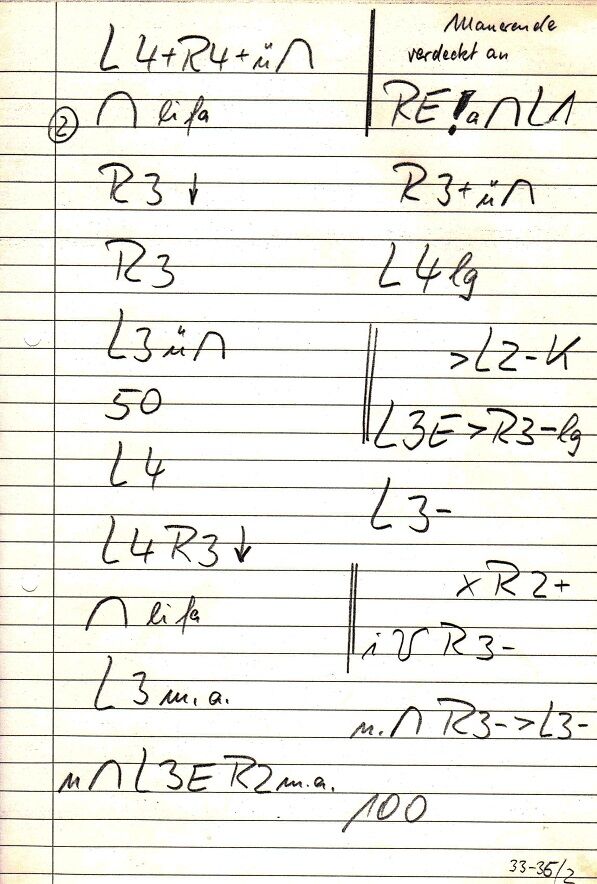 L4+R4+ü∩
② ∩ lifa
R3 ↓
R3
L3ü∩
50
L4
L4R3↓
∩ lifa
L3m.a.
n∩L3ER2m.a.
Mauerende
verdeckt an
RE!a∩L1
R3+ü∩
L4lg
>L2-K
L3E>R3-lg
L3-
xR2+
R3-
n.∩R3->L3-
100
33-35/2